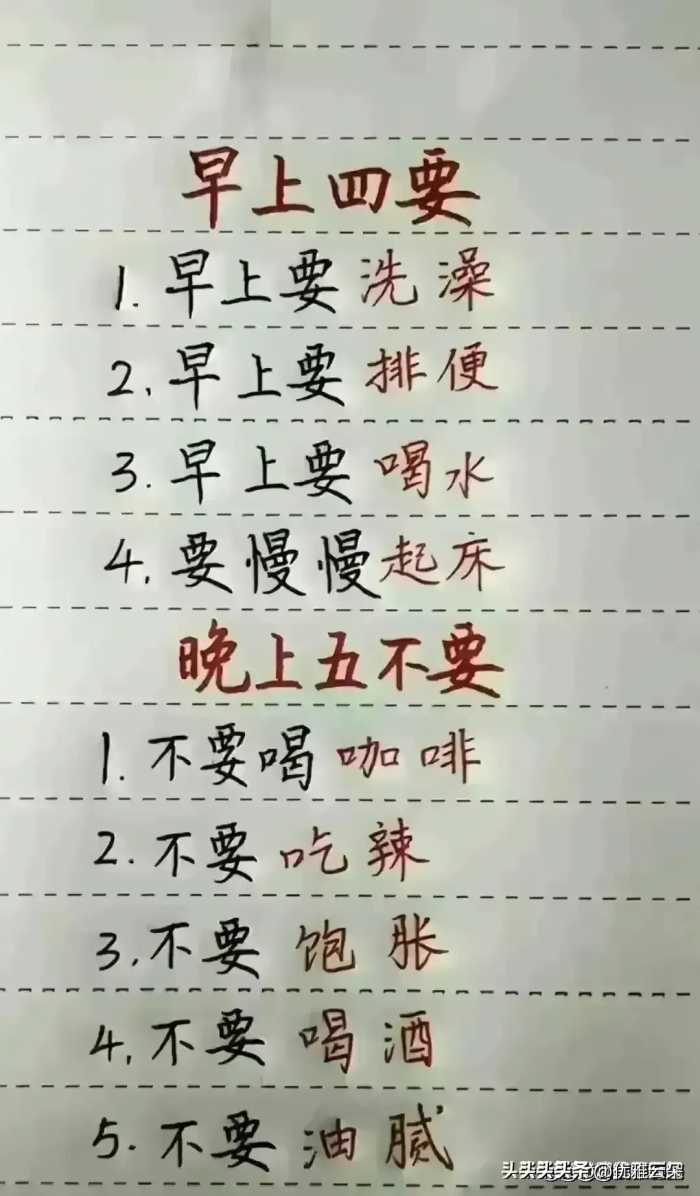 早上四要
1.早上要洗澡
2.早上要排便
3.早上要喝水
4.要慢慢起床
晚上五不要
1.不要喝咖啡
2.不要吃辣
3.不要饱胀
4.不要喝酒
5.不要油腻